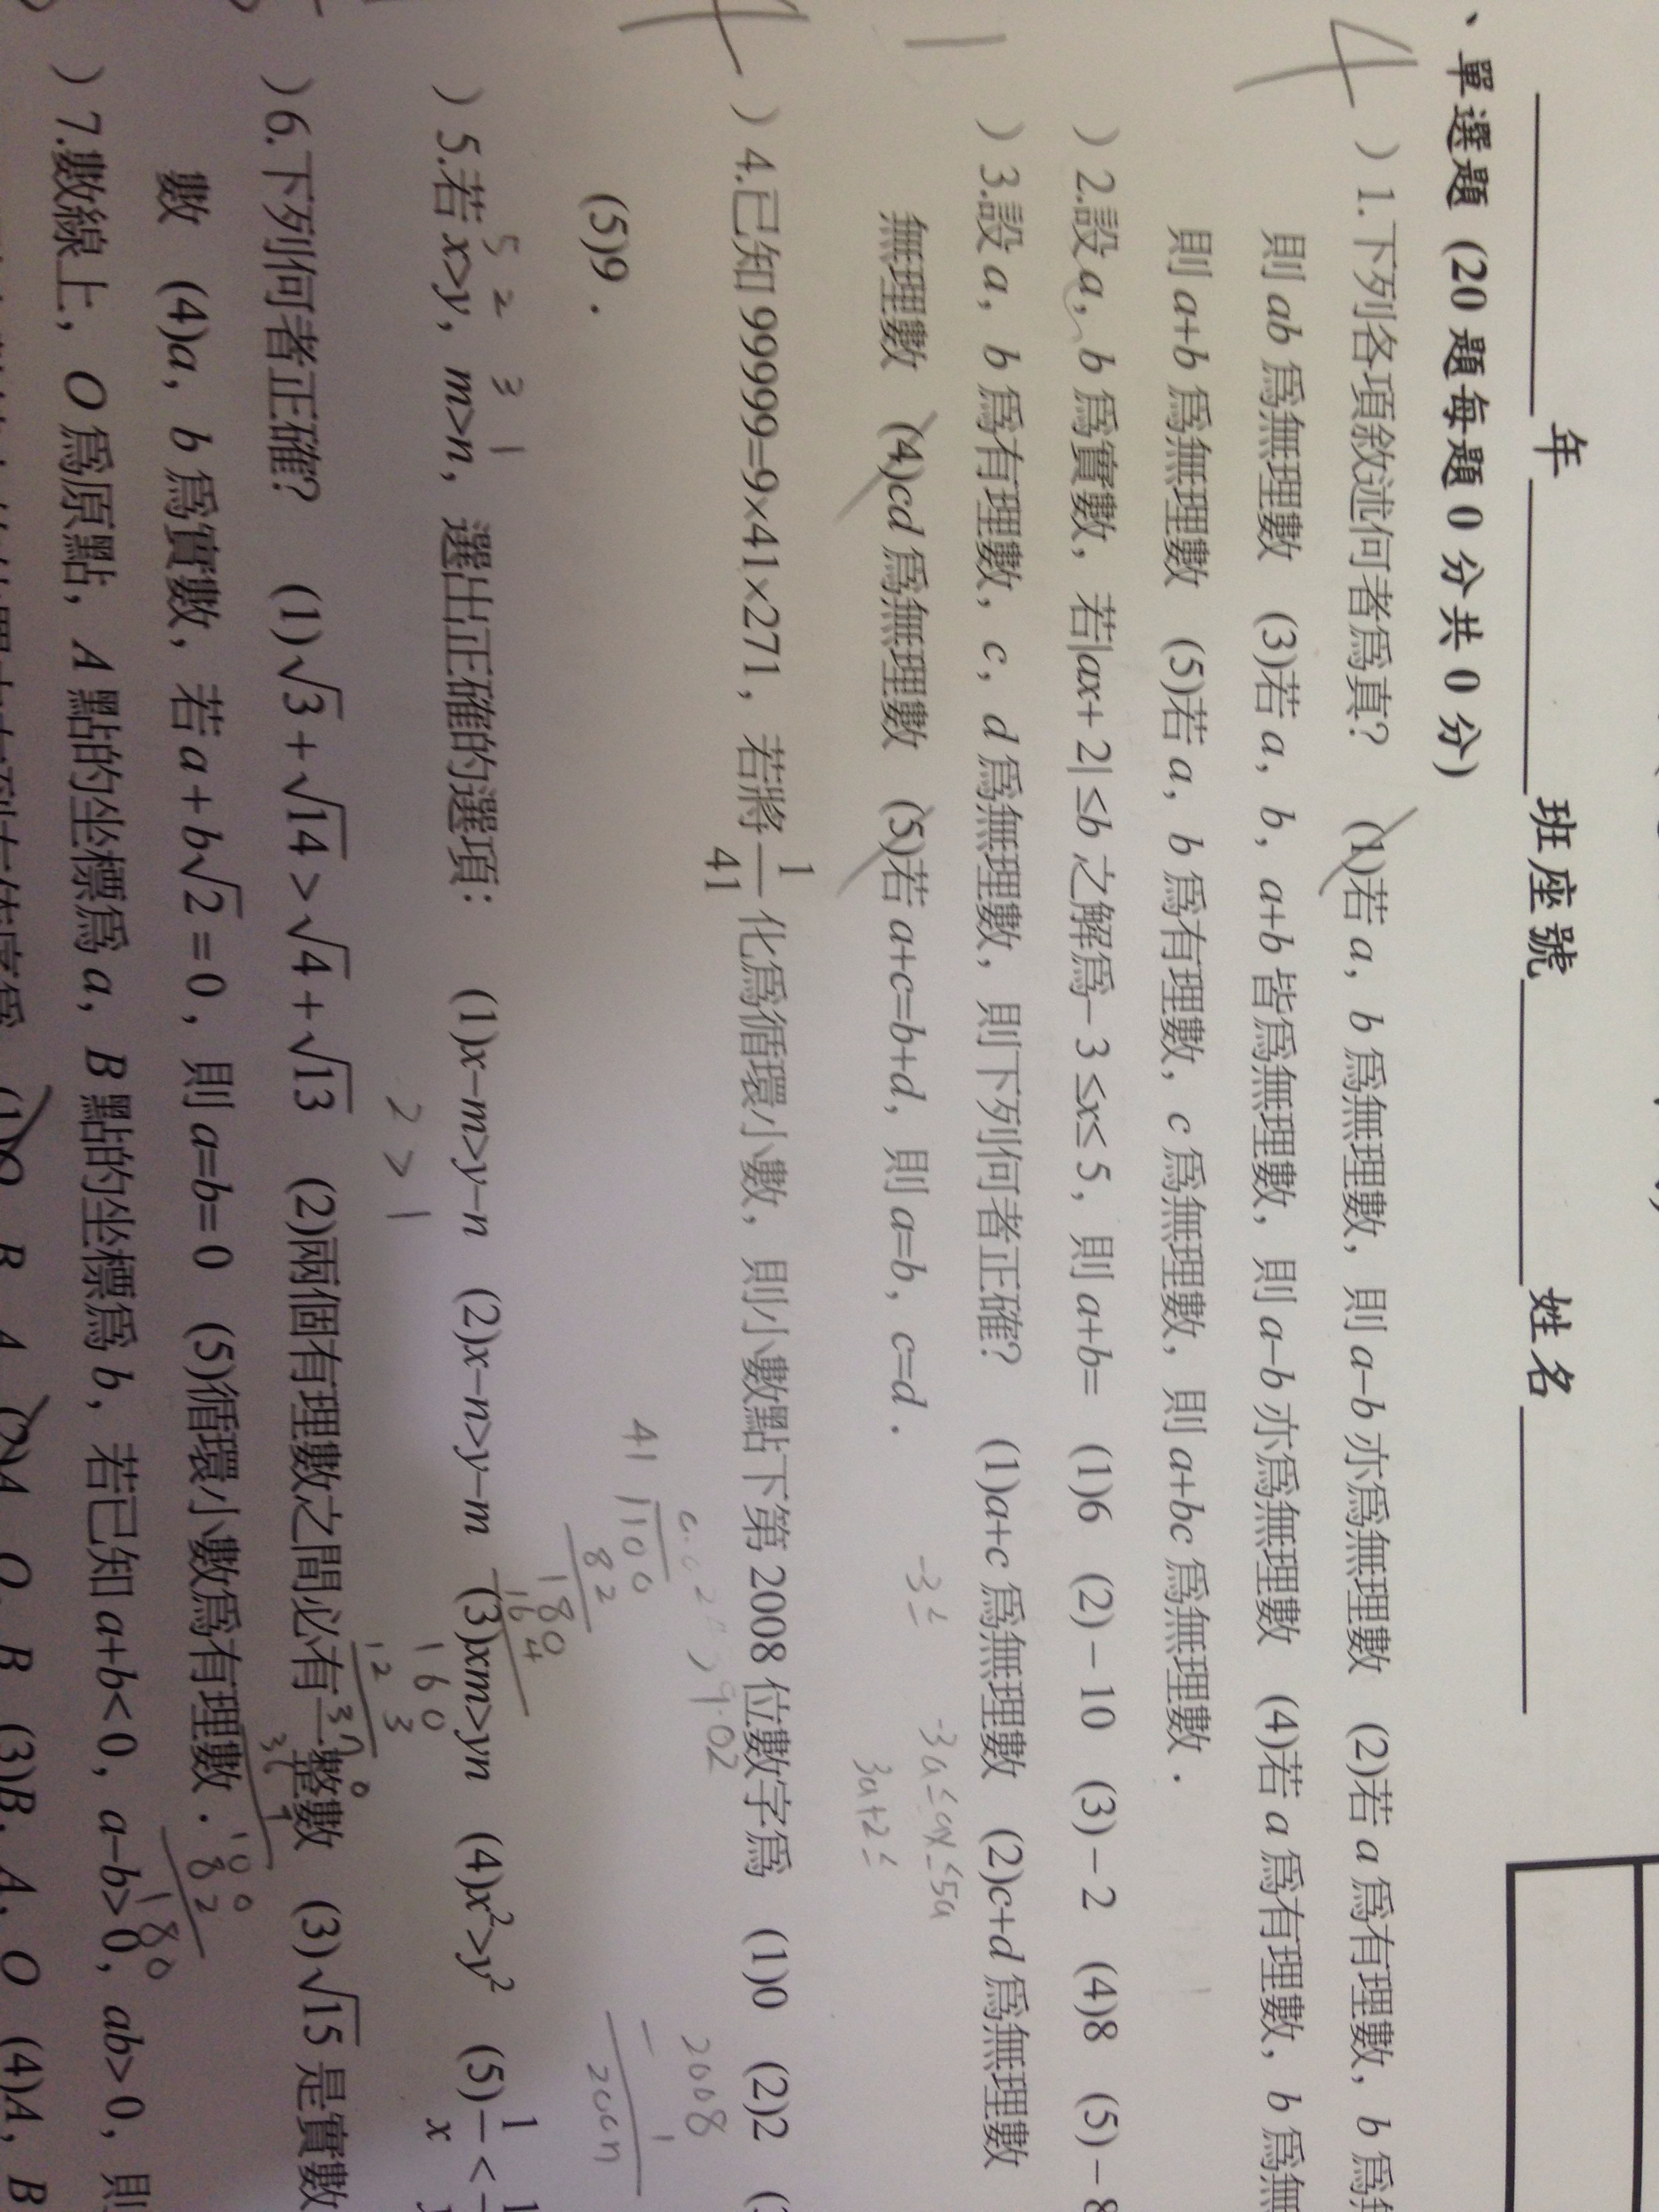 年 班座號 姓名
、單選題 (20 題每題 0 分共 0 分)
4 )1.下列各項敘述何者爲真? (1)若 a,b 爲無理數,則 a−b 亦爲無理數 (2)若 a 爲有理數,b 爲
則 ab 爲無理數 (3)若 a,b,a+b 皆爲無理數,則 a−b 亦爲無理數 (4)若 a 爲有理數,b 爲無
則 a+b 爲無理數 (5)若 a,b 爲有理數,c 爲無理數,則 a+bc 爲無理數.
)2.設 a,b 爲實數,若|ax+2|≤b 之解爲−3≤x≤5,則 a+b= (1)6 (2)−10 (3)−2 (4)8 (5)−8
1 )3.設 a,b 爲有理數,c,d 爲無理數,則下列何者正確? (1)a+c 爲無理數 (2)c+d 爲無理數
無理數 (4)cd 爲無理數 (5)若 a+c=b+d,則 a=b,c=d.
−3≤
−3a≤ax≤5a
3a+2≤
4 )4.已知 99999=9×41×271,若將 1/41 化爲循環小數,則小數點下第 2008 位數字爲 (1)0 (2)2
(5)9.
41 100
82
180
164
160
123
2008
5 2 3 1
)5.若 x>y,m>n,選出正確的選項: (1)x−m>y−n (2)x−n>y−m (3)xm>yn (4)x²>y² (5)1/x<
2>1
)6.下列何者正確? (1)√3+√14>√4+√13 (2)兩個有理數之間必有一整數 (3)√15 是實數
數 (4)a,b 爲實數,若 a+b√2=0,則 a=b=0 (5)循環小數爲有理數.
100
82
180
)7.數線上,O 爲原點,A 點的坐標爲 a,B 點的坐標爲 b,若已知 a+b<0,a−b>0,ab>0,則